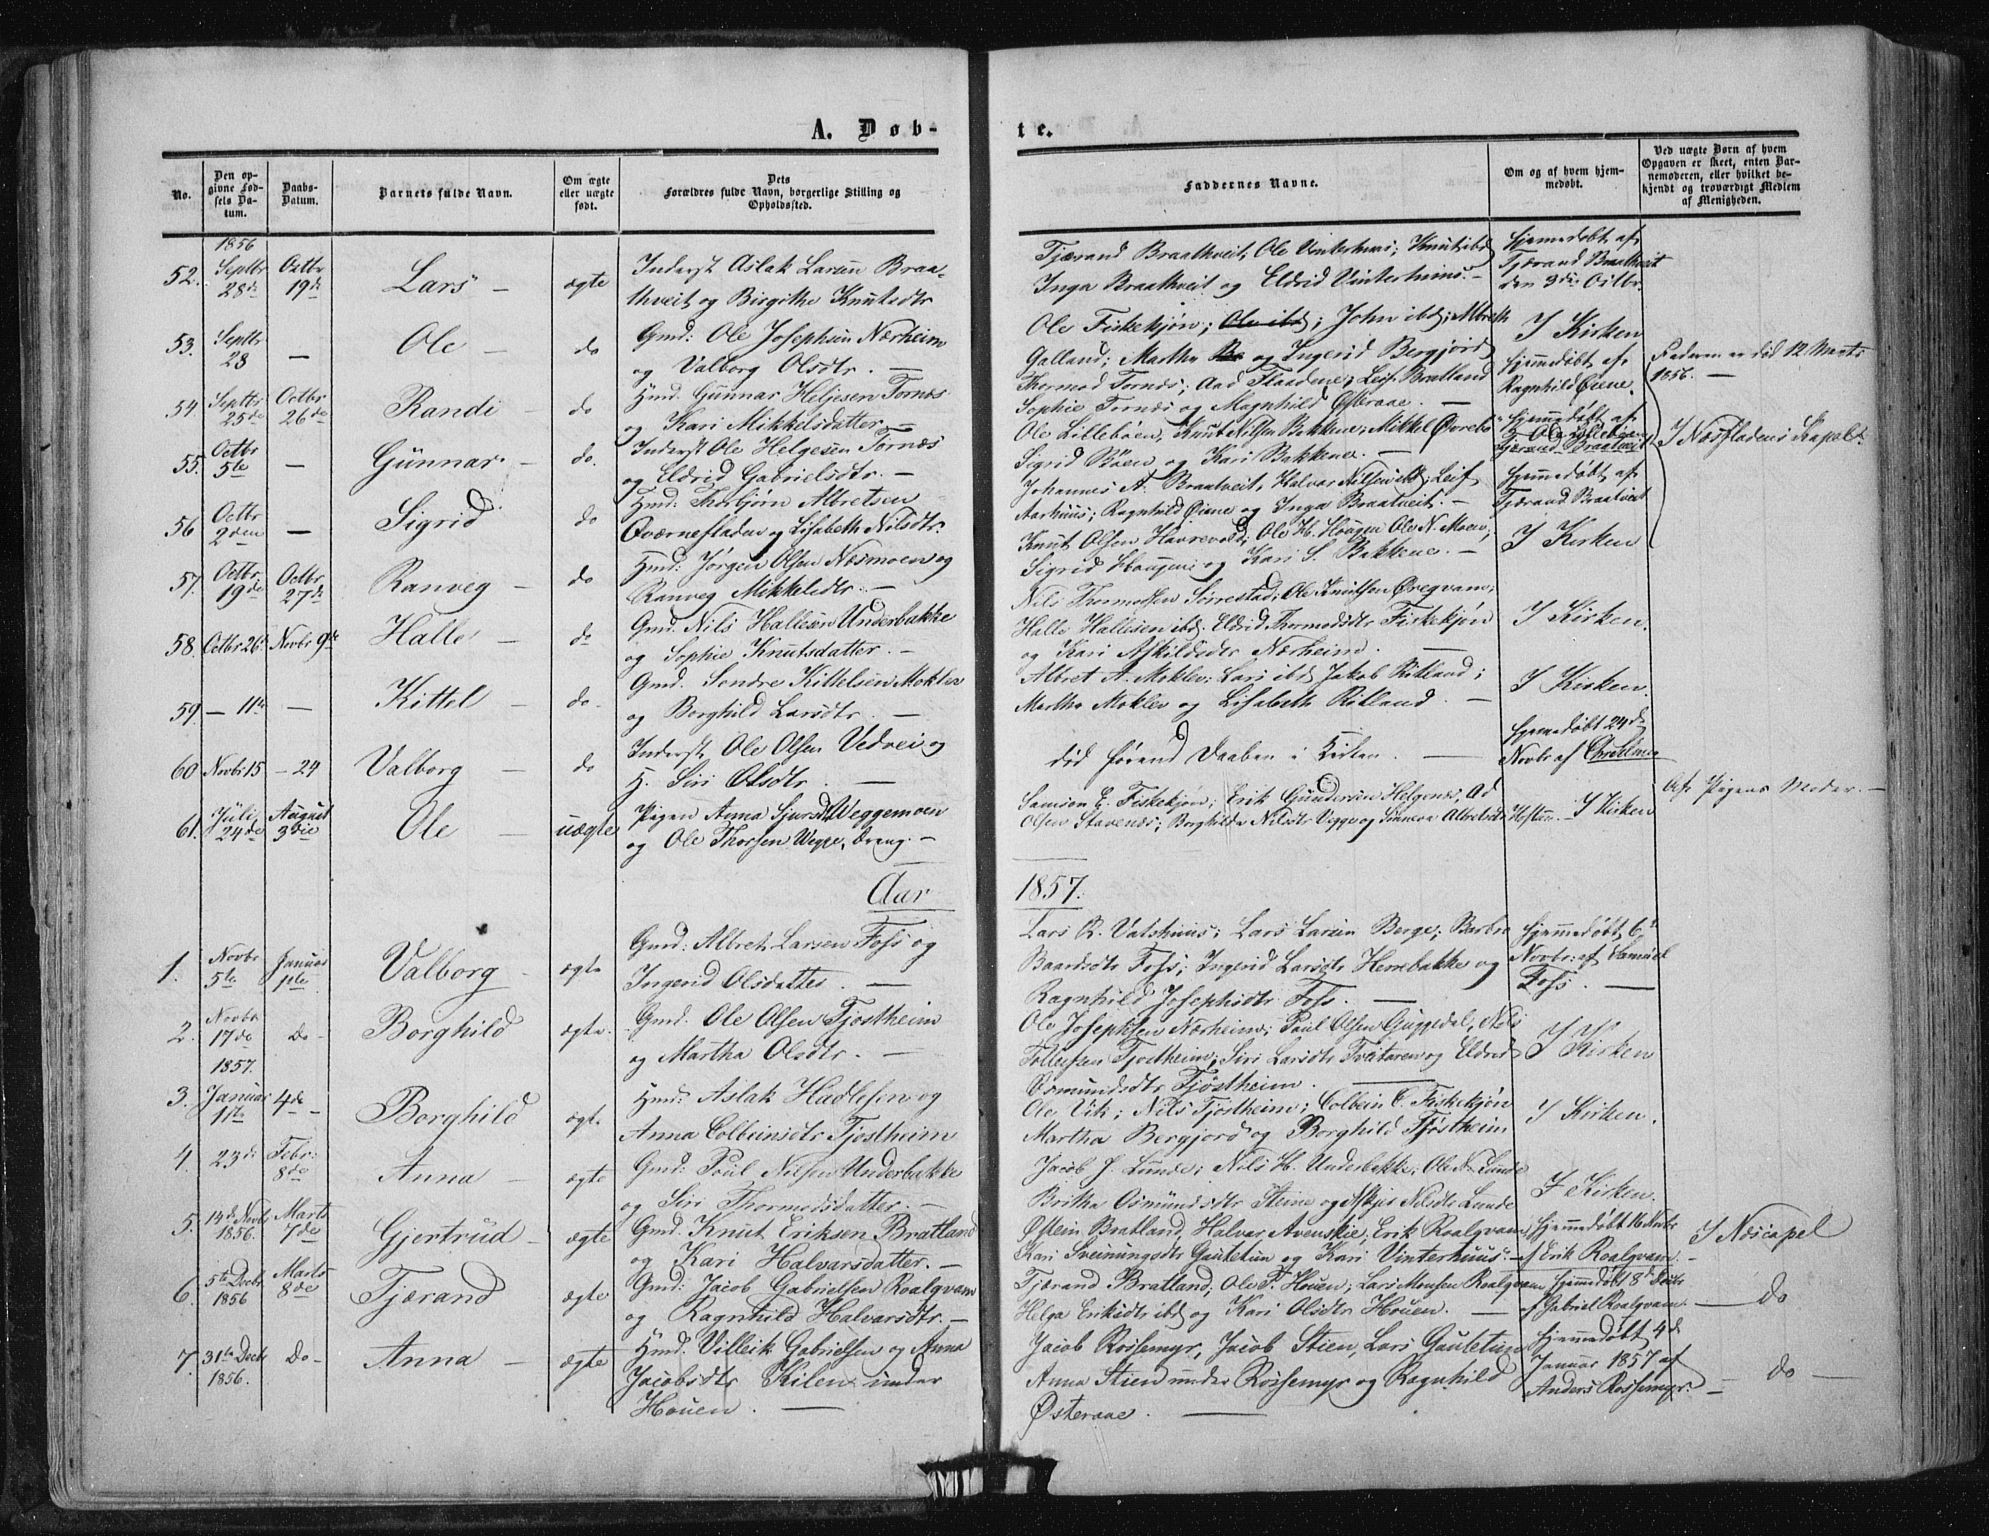 A. Døb-
te.
No.
Den opgivne Fødsels Datum.
Daabs-Datum.
Barnets fulde Navn.
Om ægte eller uægte født.
Dets Forældres fulde Navn, borgerlige Stilling og Opholdssted.
Faddernes Navne.
Om og af hvem hjemmedøbt.
Ved uægte Børn af hvem Opgaven er skeet, enten Barnemoderen, eller hvilket bekjendt og troværdigt Medlem af Menigheden.
1856
52. Septbr 28de Octbr 19de Lars – ægte
Inderst Aslak Larsen Braa-
thveit og Birgithe Knutsdtr
Tjærand Braathveit, Ole Vinterhuus; Knut ibd
Inga Braathveit og Eldrid Vinterhuus. –
Hjemmedøbt af
Tjærand Braathveit
den 9de Octbr.
53. Septbr 28 – Ole – do
Gmd: Ole Josephsen Nærheim
og Valborg Olsdtr. –
Ole Fiskekjøn; Ole ibd; John ibd; Albreth
Galland; Martha Be og Ingerid Bergjord
I Kirken
54 Septbr 25de Octbr 26de Randi – do
Hmd: Gunnar Heljesen Tornæs
og Kari Mikkelsdatter. –
Thormod Tornæs; Aad Flaadene; Leif Bratland
Sophie Tornæs og Magnhild Østeraae. –
Hjemmedøbt af
Ragnhild Øiene.
Faderen er død 12 Marts
1856. –
55. Octbr 5te – Gunnar – do.
Inderst Ole Helgesen Tornæs
og Eldrid Gabrielsdtr. –
Ole Lillebøen, Knut Nilsen Bakkene, Mikkel Øvrebø
Sigrid Bøen og Kari Bakkene. –
Hjemmedøbt af
Ole Lillebøen
Tjerand Braatveit
I Næsfladens Kapel
56 Octbr 2den – Sigrid do
Hmd: Thorbjørn Albretsen
Qværnefladen og Lisabeth Nilsdtr.
Johannes A. Braatveit, Halvar Nilsen ibd; Leif
Aarhuus; Ragnhild Øiene og Inga Braatveit. –
Hjemmedøbt af
Tjærand Braatveit
57. Octbr 19de Octbr 27de Ranveg – do
Hmd: Jørgen Olsen Næsmoen og
Ranveg Mikkelsdtr. –
Knut Olsen Havrevold; Ole H. Haugen Ole N. Moen;
Sigrid Haugen og Kari S. Bakkene. –
I Kirken
58. Octbr 26de Novbr 9de Halle – do
Gmd. Nils Hallesen Underbakke
og Sophie Knutsdatter. –
Nils Thormodsen Sørrestad; Ole Knutsen Øregvam;
Halle Hallesen ibd, Eldrid Thormodsdtr Fiskekjøn
og Kari Askildsdtr Nærheim. –
I Kirken.
59 – 11te – Kittel – do.
Gmd. Sondre Kittelsen Moklev
og Borghild Larsdtr. –
Albret A. Moklev; Lars ibd, Jakob Rilland;
Martha Moklev og Lisabeth Rilland. –
I Kirken.
60 Novbr 15 – 24 Valborg – do
Inderst, Ole Olsen Vedvei og
H. Siri Olsdtr. –
død førend Daaben i Kirken. –
Hjemmedøbt 24de
Novbr af
61. Juli 24de August 3die Ole – uægte
Pigen Anna Sjursdtr Veggemoen
og Ole Thorsen Vegge, Dreng. –
Samson E. Fiskekjøn; Erik Gundersen Helgenæs, Ad
Olsen Stavenæs; Borghilda Nilsdtr Vegge og Sønneva Albretsdtr Hesten.
I Kirken
Af Pigens Moder. –
Aar
1857.
1. Novbr 5te Januar 1ste Valborg – ægte
Gmd: Albret Larsen Foss og
Ingerid Olsdatter. –
Lars R. Vatshuus; Lars Larsen Berge; Barbro
Baardsdtr Foss; Ingerid Larsdtr Herrebakke og
Ragnhild Josephsdtr Foss. –
Hjemmedøbt 6te
Novbr: af Samuel
Foss. –
2. Novbr 17de Do – Borghild ægte.
Gmd. Ole Olsen Tjostheim
og Martha Olsdtr. –
Ole Josephsen Nærheim; Paul Olsen Guggedal, Nils
Tollefsen Tjostheim; Siri Larsdtr Tveitaren og Eldrid
Osmundsdtr Tjøstheim. –
I Kirken
1857.
3. Januar 1ste 4de – Borghild ægte
Hmd: Aslak Hadlesen og
Anna Colbeinsdtr Tjostheim
Ole Vik; Nils Tjostheim; Colbein C. Fiskekjøn
Martha Bergjord og Borghild Tjøstheim
I Kirken.
4. 23de Febr: 8de Anna – ægte
Gmd: Poul Nilsen Underbakke
og Siri Thormodsdatter. –
Jacob J. Lunde; Nils H. Underbakke; Ole N. Lunde
Britha Osmundsdtr Steine og Askjer Nilsdtr Lunde
I Kirken.
5. 14de Novbr 1856. Marts 7de Gjertrud – ægte
Gmd: Knut Eriksen Bratland
og Kari Halvarsdatter. –
Østein Bratland, Halvar Avenskie, Erik Roalqvam
Kari Sveinungsdtr Gautetun og Kari Vinterhuus. –
Hjemmedøbt 16 Novbr
af Erik Roalqvam. –
I Næscapel
6. 5te Decbr 1856 Marts 8de Tjærand ægte
Gmd: Jacob Gabrielsen Roalqvam
og Ragnhild Halvarsdtr. –
Tjærand Bratland; Ole T. Houen; Lars Monsen Roalqvam
Helga Eriksdtr ibd og Kari Olsdtr Houen. –
Hjemmedøbt 8de Decbr
af Gabriel Roalqvam. – do
7. 31te Decbr 1856. Do – Anna – ægte
Hmd. Villeik Gabrielsen og Anna
Jacobsdtr Kilen under
Houen. –
Jacob Rossemyr, Jacob Stien, Lars Gautetun
Anna Stien under Rossemyr og Ragnhild
Østeraae. –
Hjemmedøbt 4de
Januar 1857 af
Anders Rossemyr. – do –